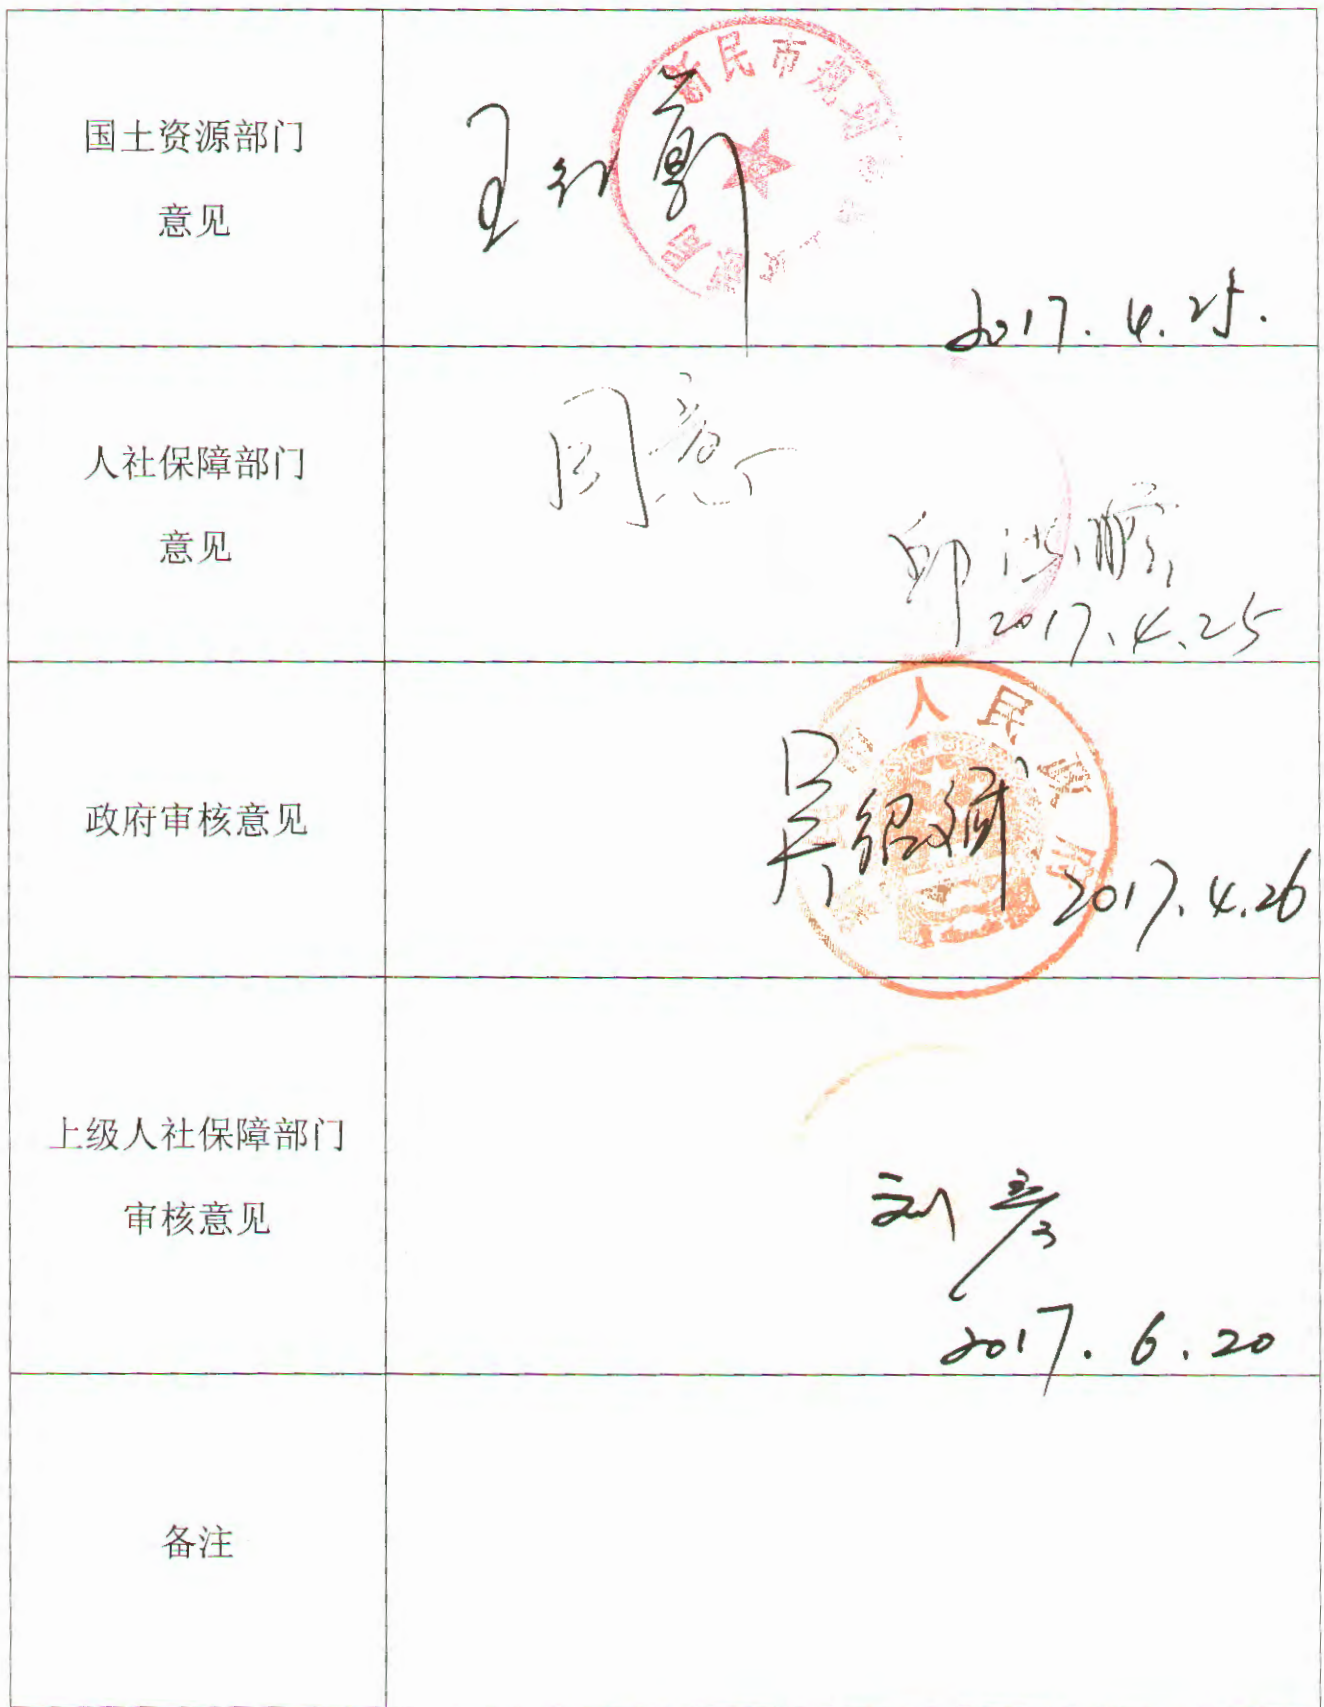 国土资源部门
意见
新民市规划
局
2017.4.25.
人社保障部门
意见
同意
邱洪
2017.4.25
政府审核意见
人民政府
吴绍斌
2017.4.26
上级人社保障部门
审核意见
刘彦
2017.6.20
备注